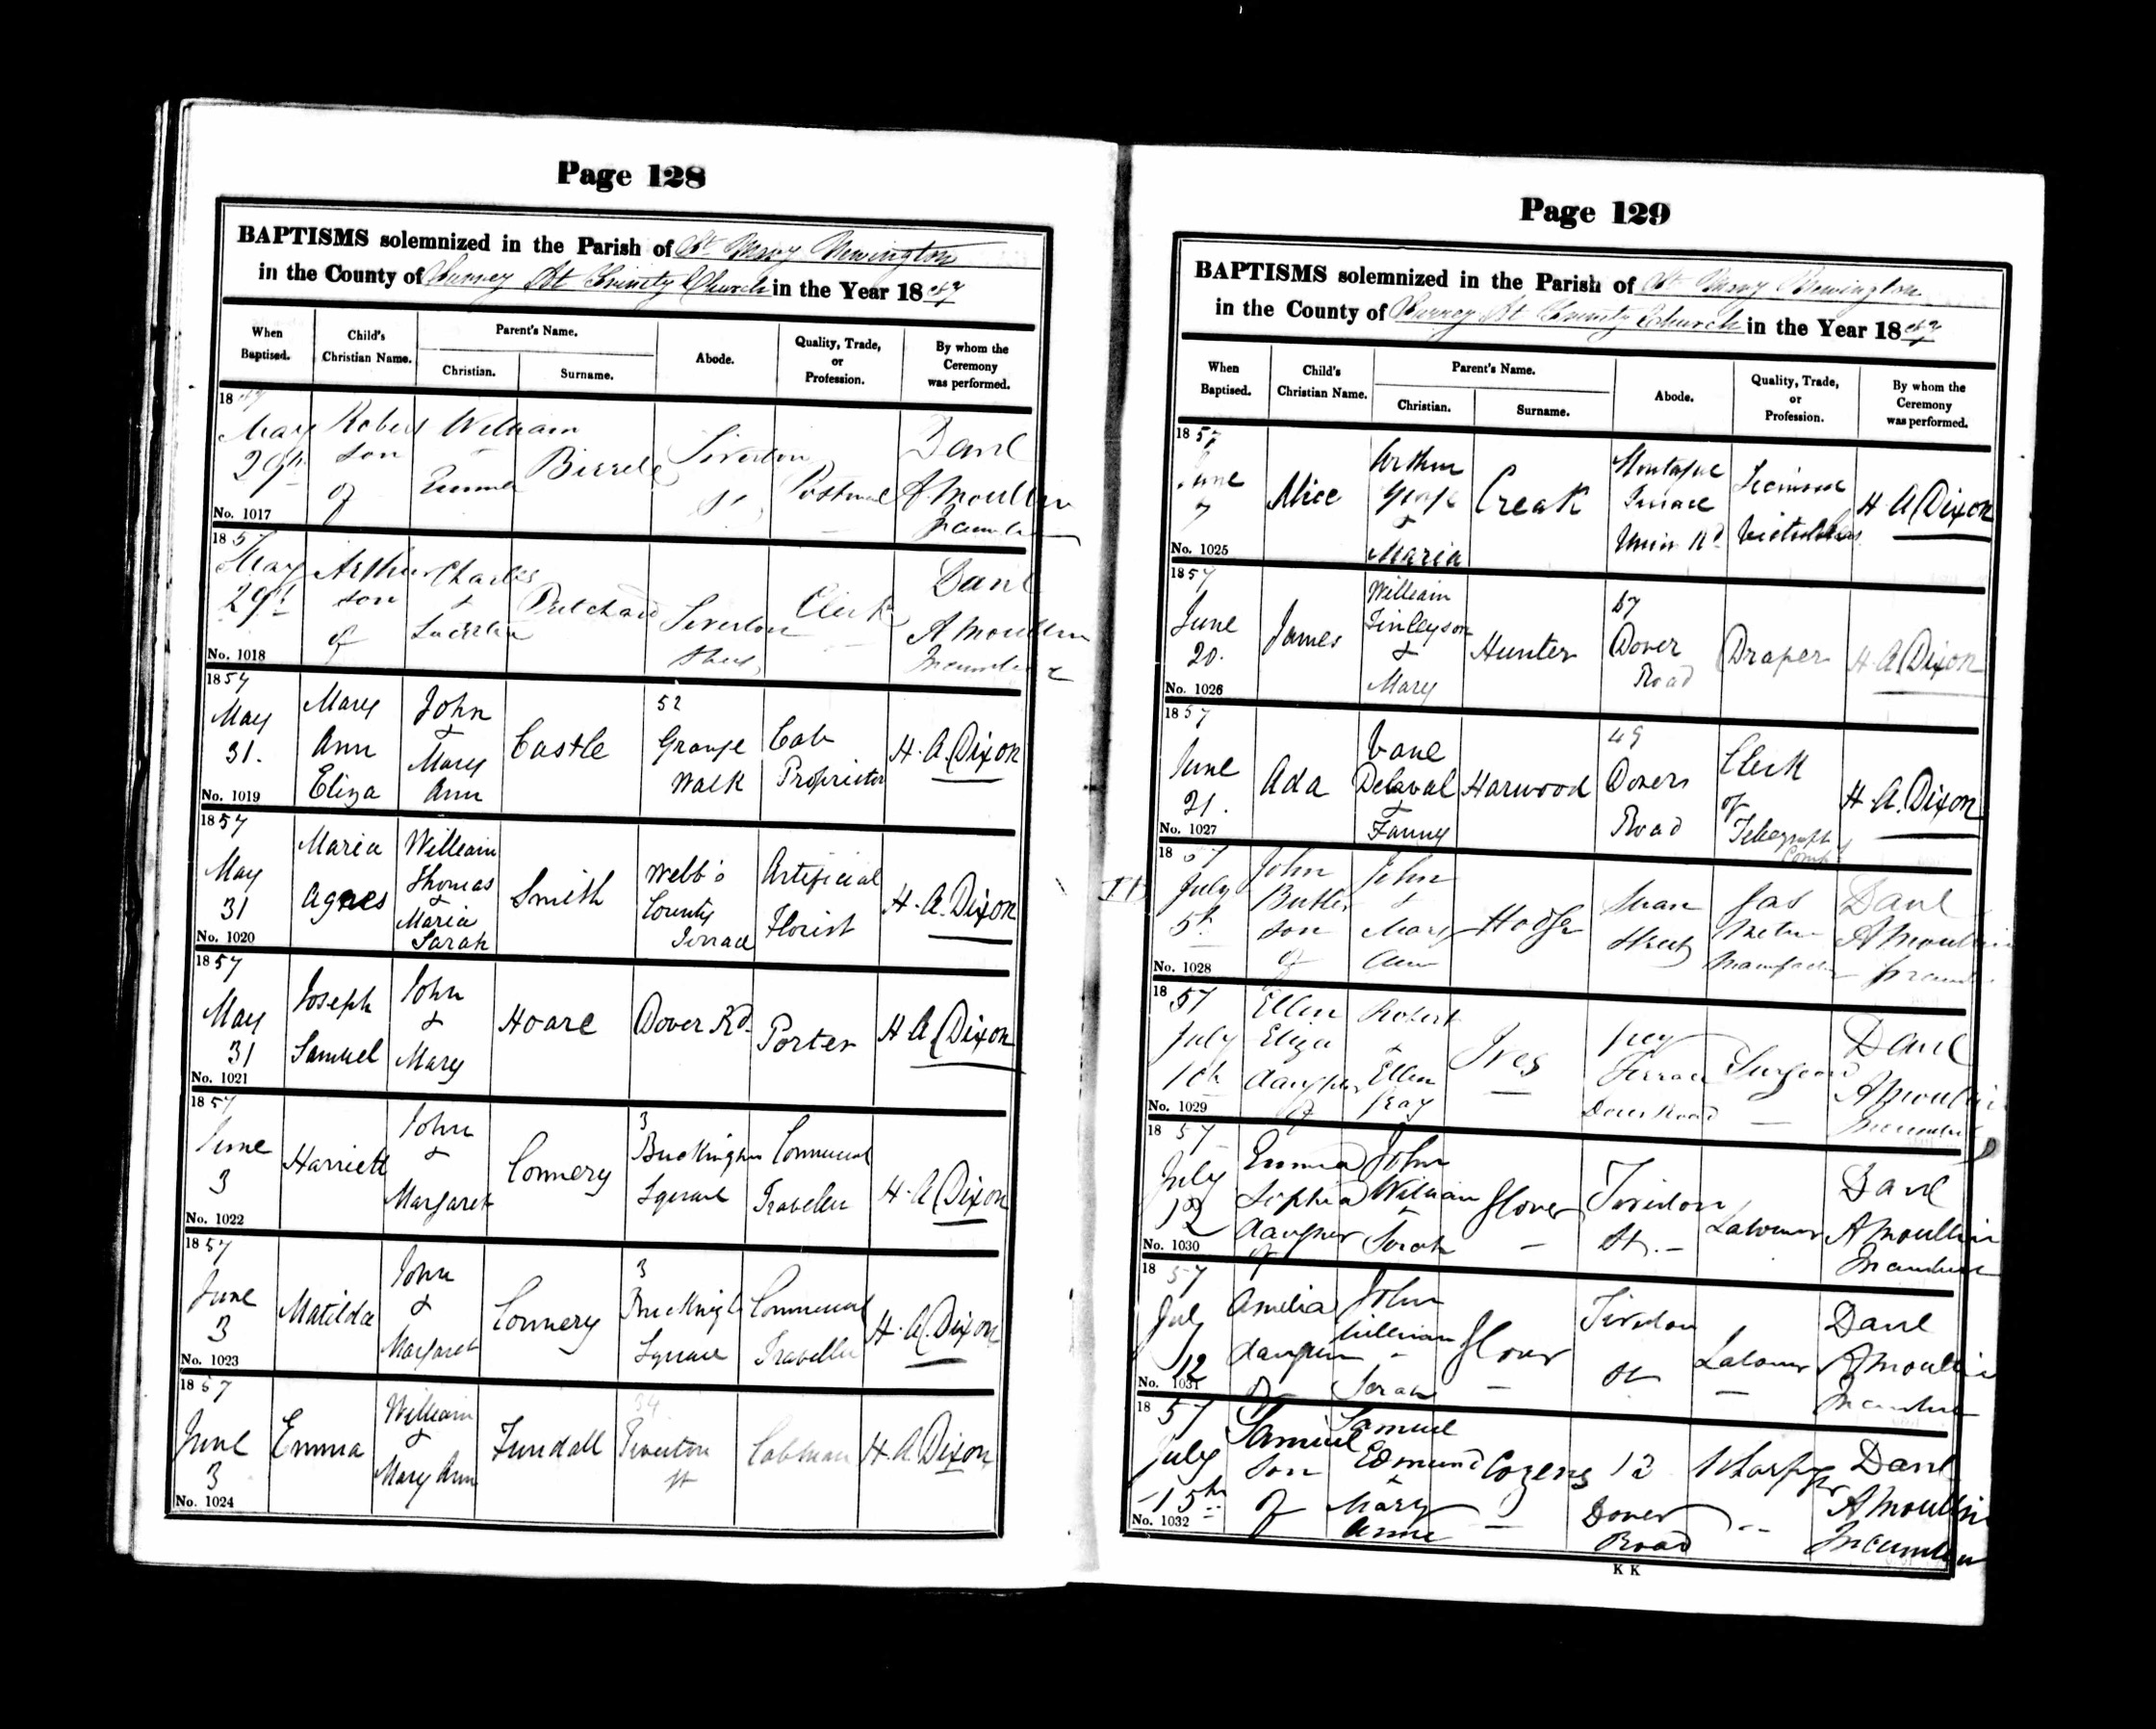 Page 128
BAPTISMS solemnized in the Parish of St Mary Newington
in the County of Surrey At Trinity Church in the Year 1857
When Baptised. Child's Christian Name. Parent's Name. Christian. Surname. Abode. Quality, Trade, or Profession. By whom the Ceremony was performed.
1857
May 29th
Robert son of
William + Emma
Birrell
Tiverton St
Postman
Danl A Moullin Incumbent
No. 1017
1857
May 29th
Arthur son of
Charles +
Tiverton Street
Clerk
Danl A Moullin Incumbent
No. 1018
1857
May 31.
Mary Ann Eliza
John + Mary Ann
Castle
52 Grange Walk
Cab Proprietor
H. A. Dixon
No. 1019
1857
May 31
Maria Agnes
William Thomas + Maria Sarah
Smith
Webb's County Terrace
Artificial Florist
H. A. Dixon
No. 1020
1857
May 31
Joseph Samuel
John + Mary
Hoare
Dover Rd.
Porter
H A Dixon
No. 1021
1857
June 3
Harriett
John + Margaret
Connery
3 Buckingham Square
Commercial Traveller
H. A Dixon
No. 1022
1857
June 3
Matilda
John & Margaret
Connery
3 Square
Commercial Traveller
H. A. Dixon
No. 1023
1857
June 3
Emma
William + Mary Ann
Tundall
54 Tiverton St
Cabman
H. A. Dixon
No. 1024
Page 129
BAPTISMS solemnized in the Parish of St Mary Newington
in the County of Surrey At Trinity Church in the Year 1857
When Baptised. Child's Christian Name. Parent's Name. Christian. Surname. Abode. Quality, Trade, or Profession. By whom the Ceremony was performed.
1857
June 7
Alice
Arthur George + Maria
Creak
Montague Terrace Union Rd
Licensed
H A Dixon
No. 1025
1857
June 20.
James
William Finleyson & Mary
Hunter
57 Dover Road
Draper
H. A Dixon
No. 1026
1857
June 21.
Ada
Vane Delaval + Fanny
Harwood
49 Dover Road
Clerk of Telegraph Comp
H. A. Dixon
No. 1027
1857
July 5th
John Butler son of
John + Mary Ann
Hodge
Swan Street
Gas Meter
Danl A Moullin
No. 1028
1857
July
Ellen Eliza daughter of
Robert + Ellen
Ives
Terrace Dover Road
Surgeon
Danl A Moullin Incumbent
No. 1029
1857
July 12
Emma Sophia daughter of
John William + Sarah
Glover
Tiverton St.
Labourer
Danl A Moullin Incumbent
No. 1030
1857
July 12
Amelia daughter of
John William + Sarah
Glover
Tiverton St
Labourer
Danl A Moullin Incumbent
No. 1031
1857
July 15th
Samuel son of
Samuel Edmund + Mary Anne
Cozens
13 Dover Road
Danl A Moullin Incumbent
No. 1032
K K